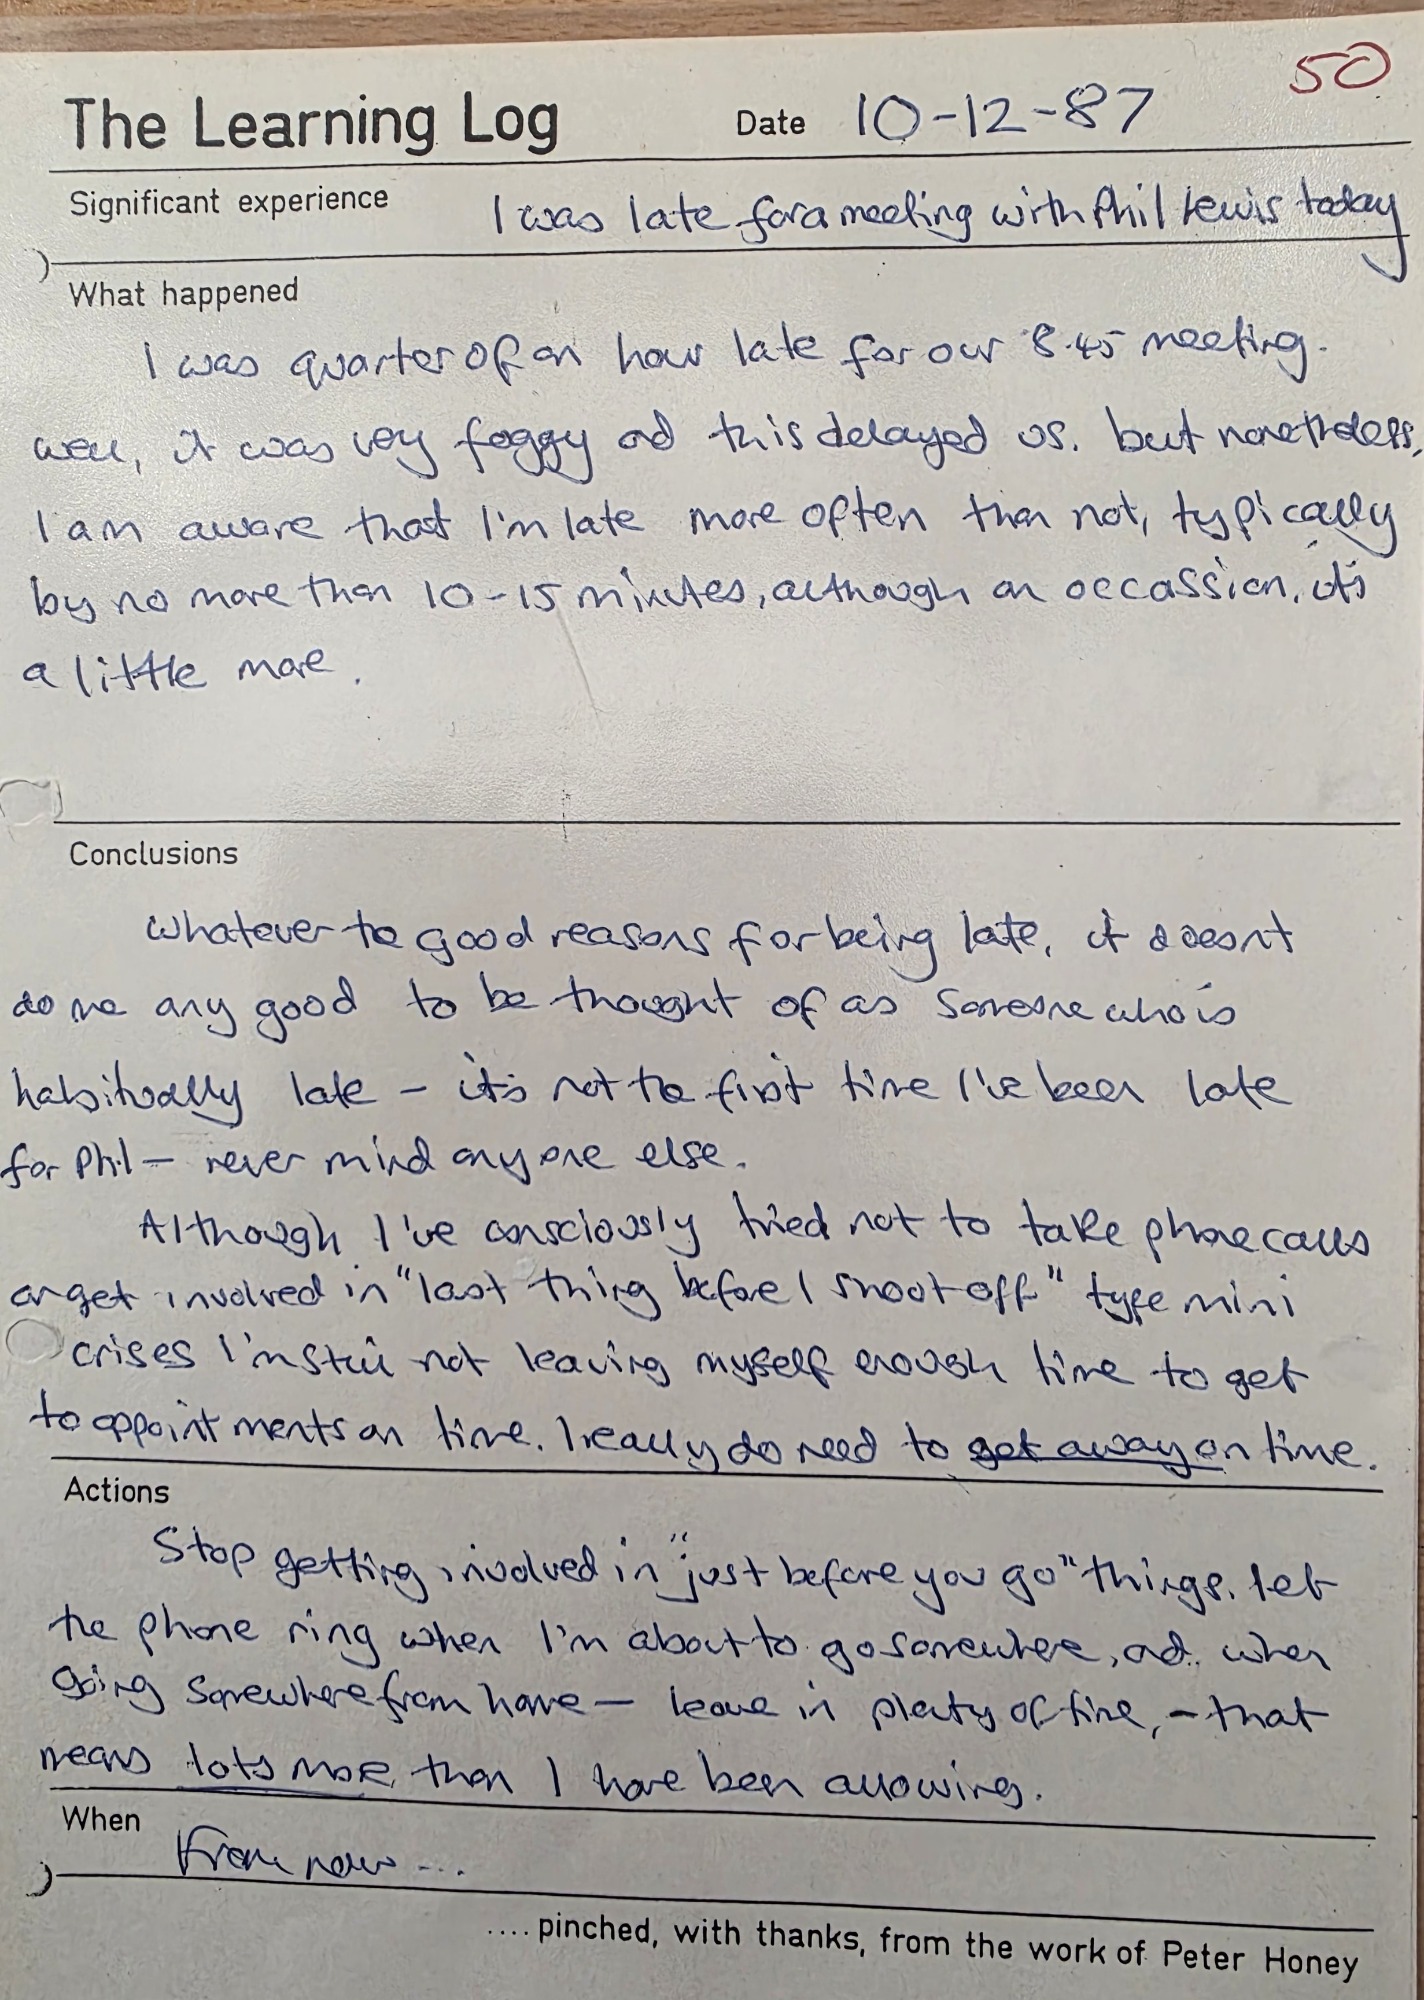 50
The Learning Log Date 10-12-87
Significant experience I was late for a meeting with Phil Lewis today
What happened
I was quarter of an hour late for our 8.45 meeting.
well, it was very foggy and this delayed us. but nonetheless,
I am aware that I'm late more often than not, typically
by no more than 10-15 minutes, although on occassion, it's
a little more.
Conclusions
Whatever the good reasons for being late, it doesn't
do me any good to be thought of as someone who is
habitually late - it's not the first time I've been late
for Phil - never mind anyone else.
Although I've consciously tried not to take phone calls
or get involved in "last thing before I shoot off" type mini
crises I'm still not leaving myself enough time to get
to appointments on time. I really do need to get away on time.
Actions
Stop getting involved in "just before you go" things. Let
the phone ring when I'm about to go somewhere, and when
going somewhere from home - leave in plenty of time, - that
means lots more than I have been allowing.
When From now ...
.... pinched, with thanks, from the work of Peter Honey